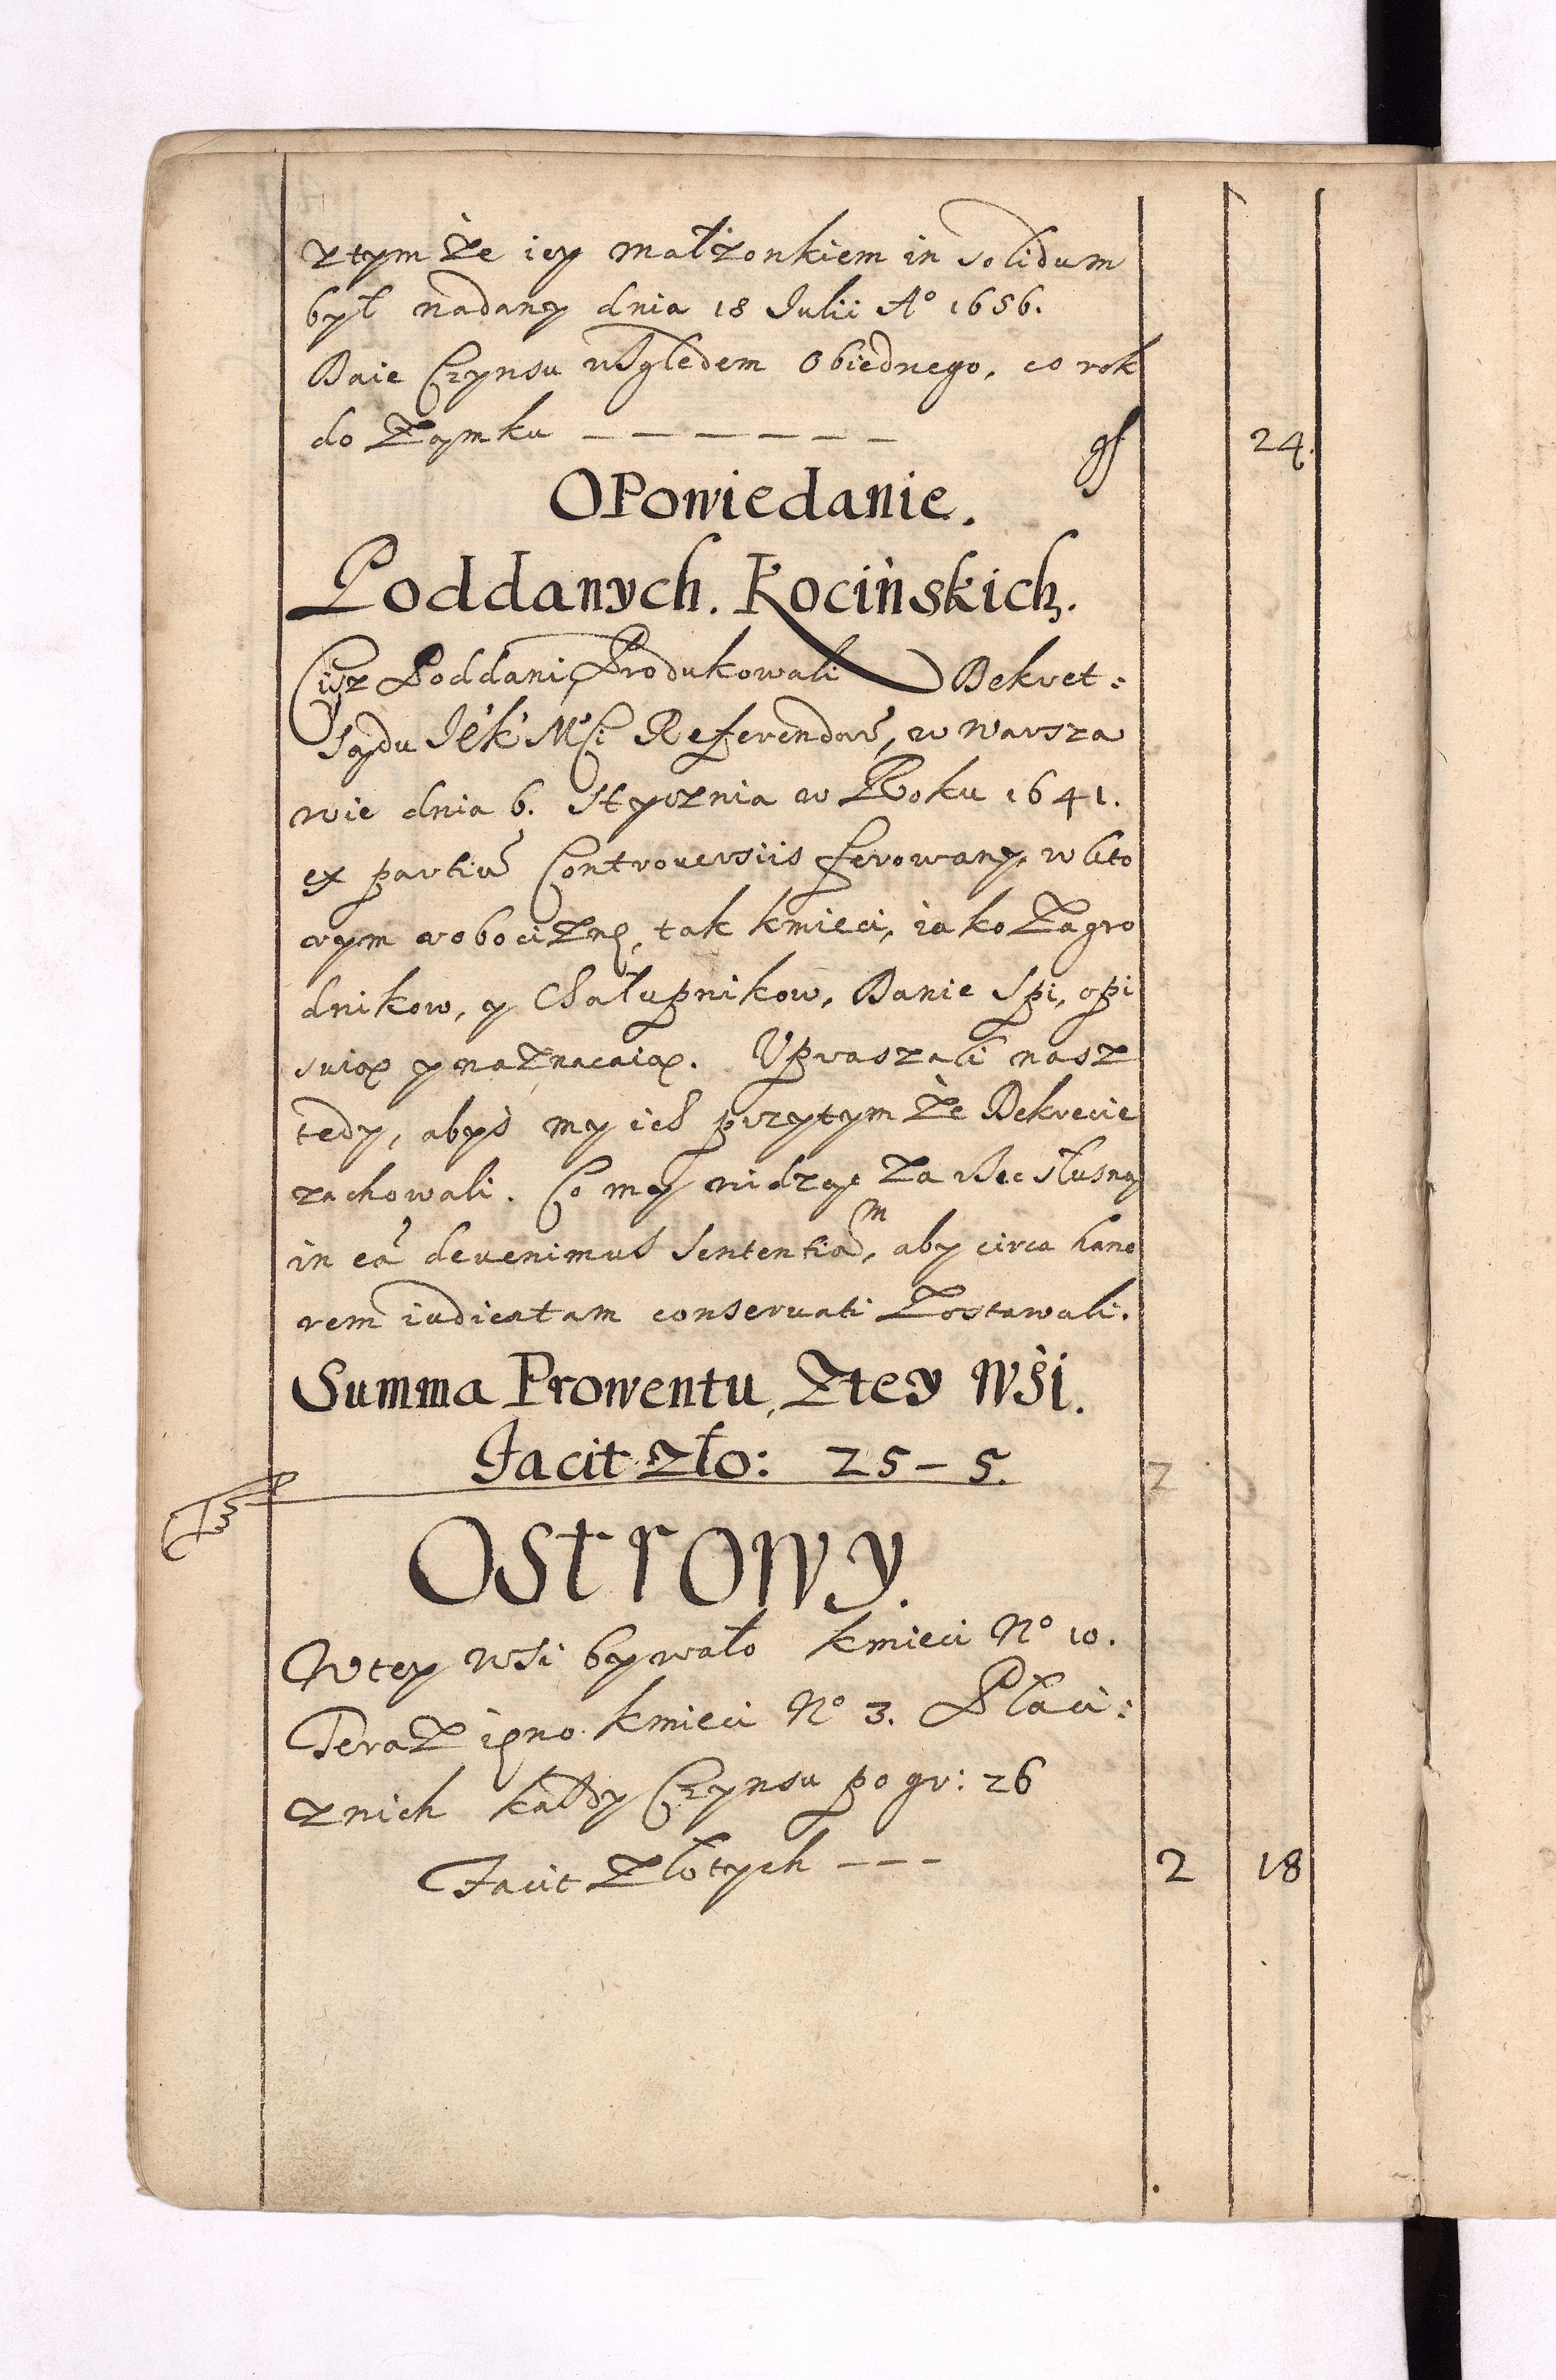 ztym że iey małżonkiem in solidum
był nadany dnia 18 Julii Aº 1656.
Daie Czynsu względem Obiednego, co rok
do Zamku – – – – – – – gs 24.
OPowiedanie.
Poddanych. Kocińskich.
Cisz Poddani, Produkowali Dekret:
Sądu Jek Mci Referendar, w Warsza
wie dnia 6. Stycznia w Roku 1641.
ex partiu Controuersiis ferowany, w kto
rym robociznę, tak kmieci, iako Zagro
dnikow, y Chałupnikow, Danie Spi, opi
suią y naznacaią. Upraszali nasz
tedy, abyś my ich przytym że Dekrecie
zachowali. Co my widząc za rzec słusną
in eã deuenimus sententiam, aby circa hanc
rem iudicatam conseruati Zostawali.
Summa Prowentu, Ztey Wśi.
Facit zło: 25 – 5.
Ostrowy.
Wtey wsi bywało kmieci Nº 10.
Teraz ięno kmieci Nº 3. Płaci:
znich kazdy Czynsu po gr: 26
Facit Złotych – – – 2 18